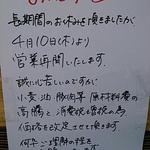 長期間のお休みを頂きましたが
4月10日(木)より
営業再開いたします。
誠に心苦しいのですが
小麦油、豚肉等 原材料費の
高騰と消費税増税の為
価格を改定させて頂きます。
何卒ご理解の程を